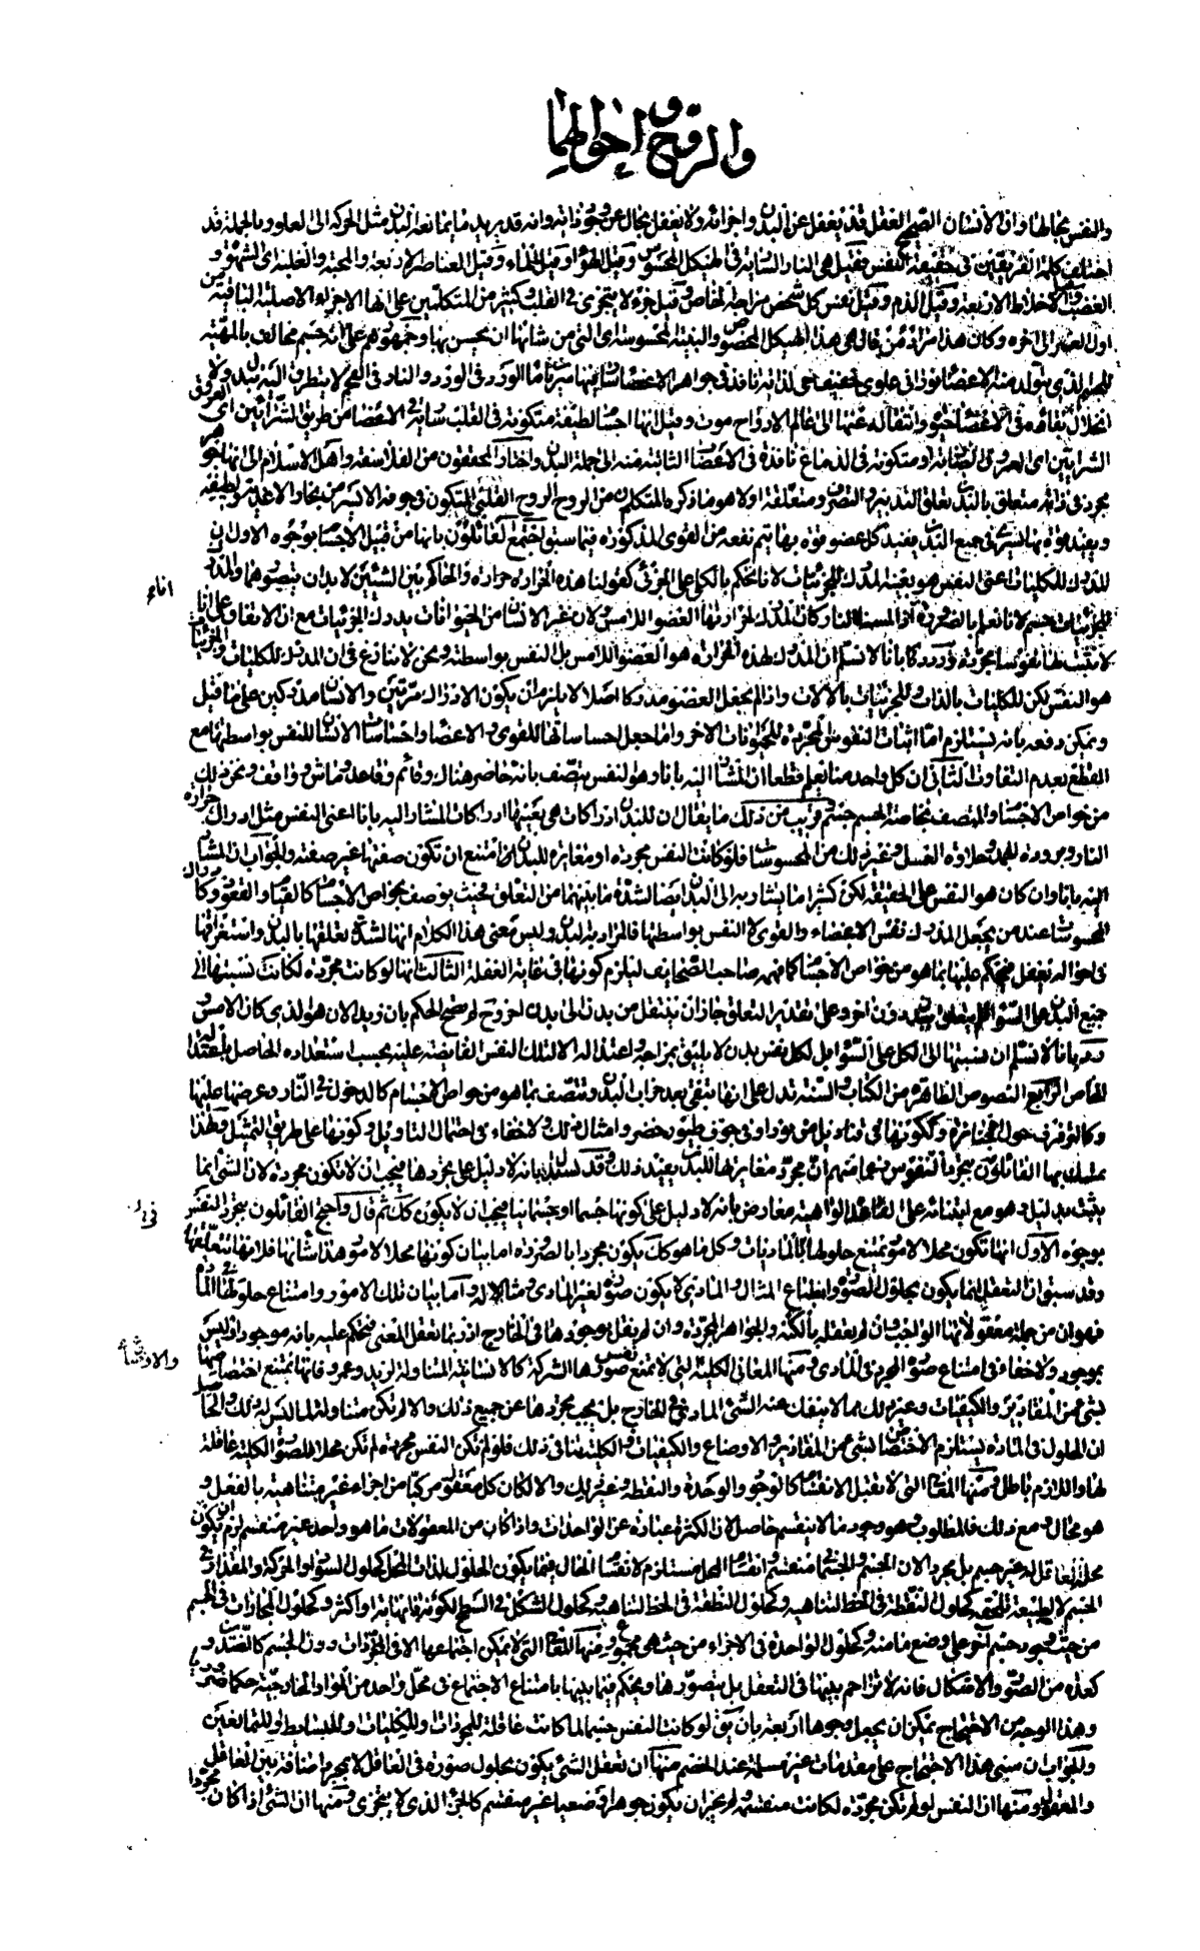 والروح و احوالهما
والنفس بحالها وان الانسان الصحيح العقل قد يغفل عن البدن واجزائه ولا يغفل بحال عن وجود ذاته وانه قد يريد ما يمانعه البدن مثل الحركة الى العلو وبالجملة قد
اختلف كلمة الفريقين في حقيقة النفس فقيل هي النار السارية في الهيكل المحسوس وقيل الهواء وقيل الماء وقيل العناصر الاربعة والمحبة والغلبة اى الشهوة و
الغضب وقيل الاخلاط الاربعة وقيل الدم وقيل نفس كل شخص مزاجه الخاص وقيل جزء لا يتجزى في القلب وكثير من المتكلمين على انها الاجزاء الاصلية الباقية من
اول العمر الى آخره وكان هذا مراد من قال هي هذا الهيكل المخصوص والبنية المحسوسة اى التى من شانها ان يحس بها وجمهورهم على انه جسم مخالف بالمهية
للجسم الذى يتولد منه الاعضاء نورانى علوى خفيف حى لذاته نافذ في جواهر الاعضاء سار فيها سريان ماء الورد في الورد والنار في الفحم لا يتطرق اليه تبدل ولا
انحلال بقائه في الاعضاء حيوة وانتقاله عنها الى عالم الارواح موت وقيل انها اجسام لطيفة متكونة في القلب سارية في الاعضاء من طريق الشرائين اى العروق
الشرايين اى العروق الضاربة او متكونة في الدماغ نافذة في الاعصاب النابتة منه الى جملة البدن واختار المحققون من الفلاسفة واهل الاسلام الى انها جوهر
مجرد في ذاته متعلق بالبدن تعلق التدبير والتصرف ومتعلقه اولا هو ما ذكره المتكلمون من الروح القلبى المتكون في جوفه الايسر من بخار الاغذية ولطيفه
ويفيده قوة بها تسرى في جميع البدن فيفيد كل عضو قوة بها يتم نفعه من القوى المذكورة فيما سبق احتج القائلون بانها من قبيل الاجسام بوجوه الاول ان
المدرك للكليات اعنى النفس هو بعينه المدرك للجزئيات لانا نحكم بالكلى على الجزئى كقولنا هذه الحرارة حرارة والحاكم بين الشيئين لا بد ان يتصورهما والمدرك
للجزئيات جسم لانا نعلم بالضرورة انا اذا لمسنا النار كان المدرك لحرارتها العضو اللامس ولان غير الانسان من الحيوانات يدرك الجزئيات مع الاتفاق على انا
لا نثبت لها نفوسا مجردة ورد بانا لا نسلم ان المدرك لهذه الحرارة هو العضو اللامس بل النفس بواسطته ونحن لا ننازع في ان المدرك للكليات والجزئيات
هو النفس لكن للكليات بالذات وللجزئيات بالآلات واذا لم يجعل العضو مدركا اصلا لا يلزم ان يكون الادراك مرتين والانسان مدركين على ما قيل
ويمكن دفعه بانه يستلزم اما اثبات النفوس المجردة للحيوانات الاخر واما جعل احساساتها للقوى والاعضاء واحساسات الانسان للنفس بواسطتها مع
القطع بعدم التفاوت الثانى ان كل واحد منا يعلم قطعا ان المشار اليه بانا وهو النفس يتصف بانه حاضر هناك وقائم وقاعد وماش وواقف ونحو ذلك
من خواص الاجسام والمتصف بخاصة الجسم جسم وقريب من ذلك ما يقال ان للبدن ادراكات هى بعينها ادراكات المشار اليه بانا اعنى النفس مثل ادراك حرارة
النار وبرودة الجمد وحلاوة العسل وغير ذلك من المحسوسات فلو كانت النفس مجردة او مغايرة للبدن امتنع ان تكون صفتها غير صفته والجواب ان المشار
اليه بانا وان كان هو النفس على الحقيقة لكن كثيرا ما يشار به الى البدن ايضا لشدة ما بينهما من التعلق فحيث يوصف بخواص الاجسام كالقيام والقعود وكادراك
المحسوسات عند من يجعل المدرك نفس الاعضاء والقوى لا النفس بواسطتها فالمراد به البدن وليس معنى هذا الكلام انها لشدة تعلقها بالبدن واستغراقها
في احواله تغفل فيحكم عليها بما هو من خواص الاجسام كما فهمه صاحب الصحايف ليلزم كونها في غاية الغفلة الثالث انها لو كانت مجردة لكانت نسبتها الى
جميع البدن على السواء فلم يتعلق ببدن دون آخر وعلى تقدير التعلق جاز ان ينتقل من بدن الى بدن آخر وح لم يصح الحكم بان زيدا الان هو الذى كان بالامس و
رد بانا لا نسلم ان نسبتها الى الكل على السواء بل لكل نفس بدن لا يليق بمزاجه واعتداله الا لتلك النفس الفايضة عليه بحسب استعداده الحاصل باعتداله
الخاص الرابع النصوص الظاهرة من الكتاب والسنة تدل على انها تبقى بعد خراب البدن وتتصف بما هو من خواص الاجسام كالدخول في النار وعرضها عليها
وكالترفرف حول الجنازة وككونها في قناديل من نور او في جوف طيور خضر وامثال ذلك ولا خفاء في احتمال التاويل وكونها على طريق التمثيل ولهذا
تمسك بها القائلون بتجرد النفوس زعما منهم ان مجرد مغايرتها للبدن يفيد ذلك وقد يستدل بانه لا دليل على تجردها فيجب ان لا تكون مجردة لان الشئ انما
يثبت بدليله وهو مع ابتنائه على القاعدة الواهية معارض بانه لا دليل على كونها جسما او جسمانيا فيجب ان لا يكون كك ثم قال واحتج القائلون بتجرد النفس
بوجوه الاول انها تكون محلا لامور يمتنع حلولها بالماديات وكل ما هو كك يكون مجردا بالضرورة اما بيان كونها محلا لامور هذا شانها فلانها تتعقلها
وقد سبق ان التعقل انما يكون بحلول الصورة وانطباع المثال والمادى لا يكون صورة لغير المادى ومثالا له واما بيان تلك الامور وامتناع حلولها في المادة
فهو ان من جملة معقولاتها الواجب وان لم تعقله بالكنه والجواهر المجردة وان لم يقل بوجودها في الخارج اذ ربما تعقل المعنى فيحكم عليه بانه موجود او ليس
بموجود ولا خفاء في امتناع صورة المجرد في المادى ومنها المعانى الكلية التى لا يمتنع نفس صورها الشركة كالانسانية المتناولة لزيد وعمرو فانها يمتنع اختصاصها
بشئ من المقادير والكيفيات وغير ذلك مما لا ينفك عنه الشئ المادى في الخارج بل يجب تجردها عن جميع ذلك والا لم تكن متناولة لما ليس له ذلك والحاصل
ان الحلول في المادة يستلزم الاختصاص بشئ من المقادير والاوضاع والكيفيات والكلية تنافى ذلك فلو لم تكن النفس مجردة لم تكن محلا للصورة الكلية عاقلة
لها واللازم باطل ومنها المعانى التى لا تقبل الانقسام كالوجود والوحدة والنقطة وغير ذلك والا لكان كل معقول مركبا من اجزاء غير متناهية بالفعل و
هو محال ومع ذلك فالمطلوب وهو وجود ما لا ينقسم حاصل لان الكثرة عبارة عن الواحدات واذا كان من المعقولات ما هو واحد غير منقسم لزم ان يكون
محله العاقل له غير جسم بل مجردا لان الجسم والجسمانى منقسم وانقسام المحل مستلزم لانقسام الحال فيما يكون الحلول لذات المحل كحلول السواد والحركة والمقدار في
الجسم لا لطبيعة تلحقه كحلول النقطة في الخط لتناهيه وكحلول الشكل في السطح لكونه ذا نهاية او اكثر وكحلول المحاذات في الجسم
من حيث وجود جسم آخر على وضع ما منه وكحلول الواحدة في الاجزاء من حيث هو مجموع ومنها المعانى التى لا يمكن اجتماعها الا في المجردات دون الجسم كالضدين و
كعدة من الصور والاشكال فانه لا تزاحم بينها في التعقل بل يتصورها ويحكم فيما بينها بامتناع الاجتماع في محل واحد من المواد الخارجية حكما ضروريا
وهذا الوجه من الاحتجاج يمكن ان يجعل وجوها اربعة بان يق لو كانت النفس جسما لما كانت عاقلة للمجردات وللكليات وللبسايط وللمتمانعين
والجواب ان مبنى هذا الاحتجاج على مقدمات غير مسلمة عند الخصم منها ان تعقل الشئ يكون بحلول صورته في العاقل لا بمجرد اضافة بين العاقل
والمعقول ومنها ان النفس لو لم تكن مجردة لكانت منقسمة ولم يجز ان يكون جوهرا وضعيا غير منقسم كالجزء الذى لا يتجزى ومنها ان الشئ اذا كان مجردا